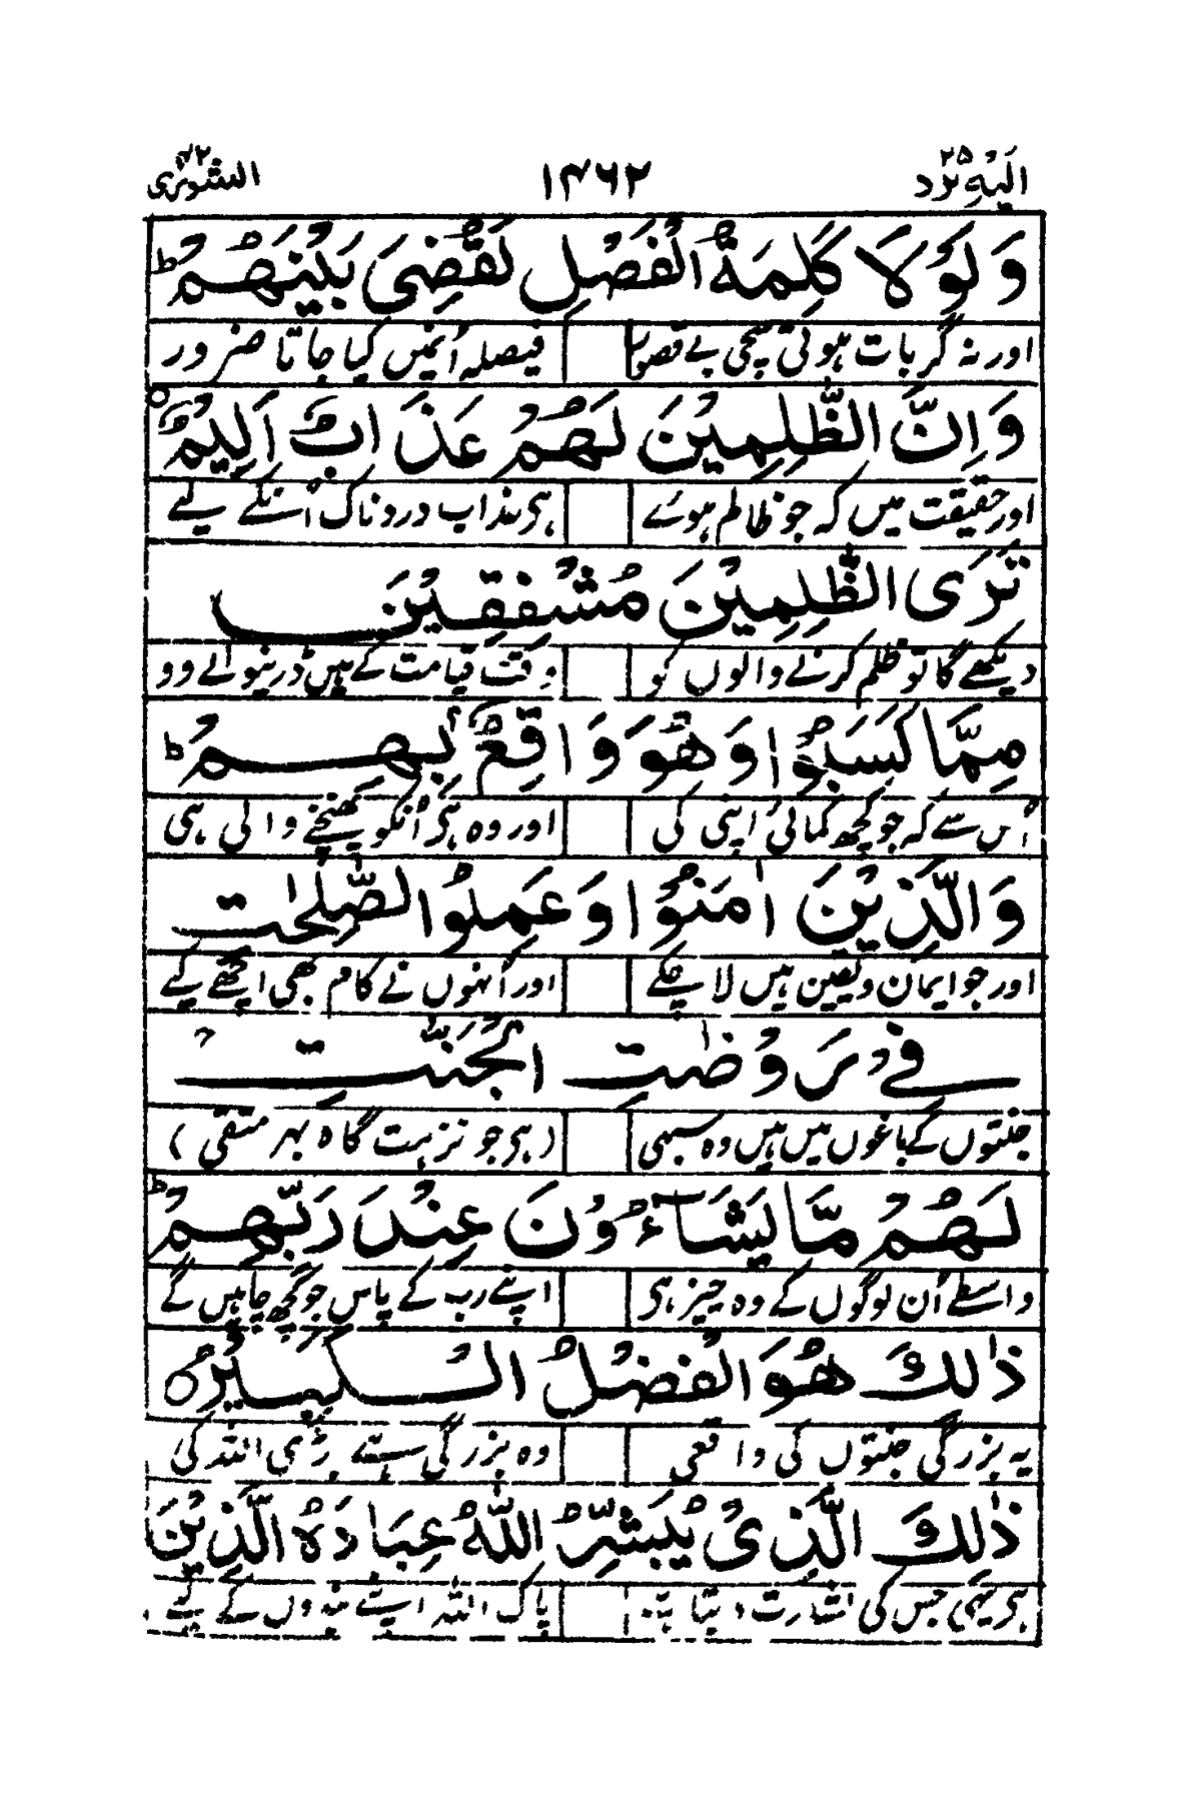 الیه یرد ۲۵ ۱۴۶۲ الشوری ۴۲
وَلَوْلَا كَلِمَةُ الْفَصْلِ لَقُضِيَ بَيْنَهُمْ ؕ
اور نہ گر بات ہوتی سچی بے قصور فیصلہ اُنمیں کیا جاتا ضرور
وَاِنَّ الظّٰلِمِيْنَ لَهُمْ عَذَابٌ اَلِيْمٌ ○
اور حقیقت میں کہ جو ظالم ہوئے ہی عذاب دردناک اُنکے لیے
تَرَى الظّٰلِمِيْنَ مُشْفِقِيْنَ
دیکھے گا تو ظلم کرنے والوں کو وقت قیامت کے ہیں ڈرنیوالے وو
مِمَّا كَسَبُوْا وَهُوَ وَاقِعٌۢ بِهِمْ ؕ
اُس سے کہ جو کچھ کمائی اپنی کی اور وہ ہی اُنکو پہنچنے والی ہی
وَالَّذِيْنَ اٰمَنُوْا وَعَمِلُوا الصّٰلِحٰتِ
اور جو ایمان و یقین ہیں لا چکے اور اُنہوں نے کام بھی اچھے کیے
فِيْ رَوْضٰتِ الْجَنّٰتِ ۚ
جنتوں کے باغوں میں ہیں وہ سبھی (ہی جو نزہت گاہ بہر متقی)
لَهُمْ مَّا يَشَآءُوْنَ عِنْدَ رَبِّهِمْ ؕ
واسطے اُن لوگوں کے وہ چیز ہی اپنے رب کے پاس جو کچھ چاہیں گے
ذٰلِكَ هُوَ الْفَضْلُ الْكَبِيْرُ ○
یہ بزرگی جنتوں کی واقعی وہ بزرگی ہے بڑی اللہ کی
ذٰلِكَ الَّذِيْ يُبَشِّرُ اللّٰهُ عِبَادَهُ الَّذِيْنَ
ہی یہی جس کی بشارت دیتا ہے پاک اللہ اپنے بندوں کے لیے